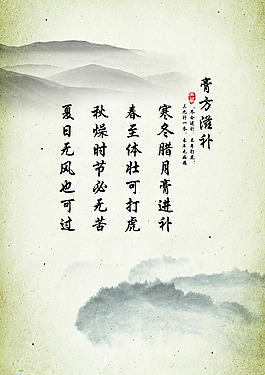 膏方滋补
寒冬腊月膏进补
春至体壮可打虎
秋燥时节必无苦
夏日无风也可过